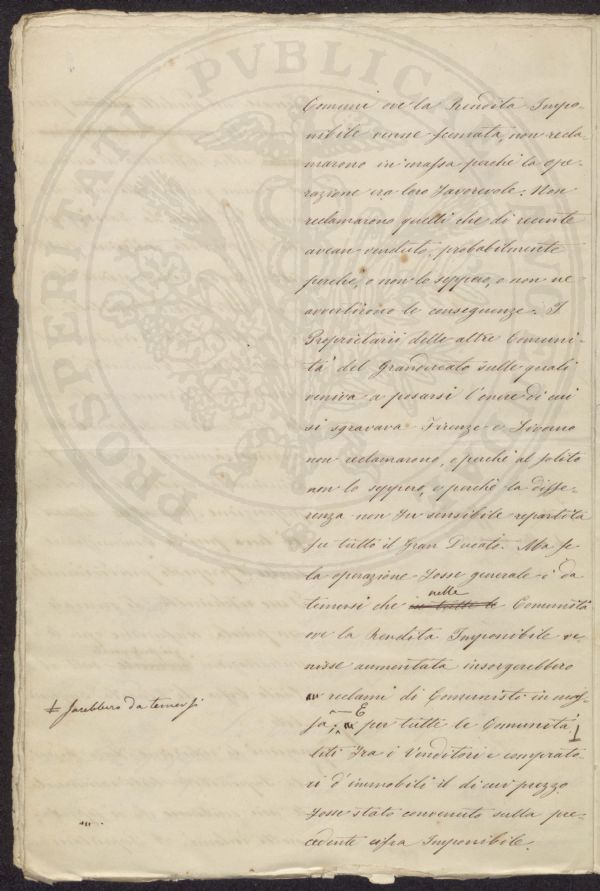 Comuni ove la Rendita Impo-
nibile venne scemata, non recla-
marono in massa perchè la ope-
razione era loro favorevole. Non
reclamarono quelli che di recente
avean venduto, probabilmente
perchè, o non lo seppero, o non ne
avvertirono le conseguenze. I
Proprietarii delle altre Comuni-
tà del Granducato sulle quali
veniva a posarsi l'onere di cui
si sgravava Firenze e Livorno
non reclamarono, o perchè al solito
non lo seppero, o perchè la diffe-
renza non fu sensibile repartita
su tutto il Gran Ducato. Ma se
la operazione fosse generale è da
temersi che in tutte le nelle Comunità
ove la Rendita Imponibile ve-
nisse aumentata insorgerebbero
reclami di Comunisti in mas-
sa. E per tutte le Comunità
⊥ sarebbero da temersi
liti fra i Venditori e comprato-
ri d'immobili il di cui prezzo
fosse stato convenuto sulla pre-
cedente cifra Imponibile.
PROSPERITATI PVBLICAE